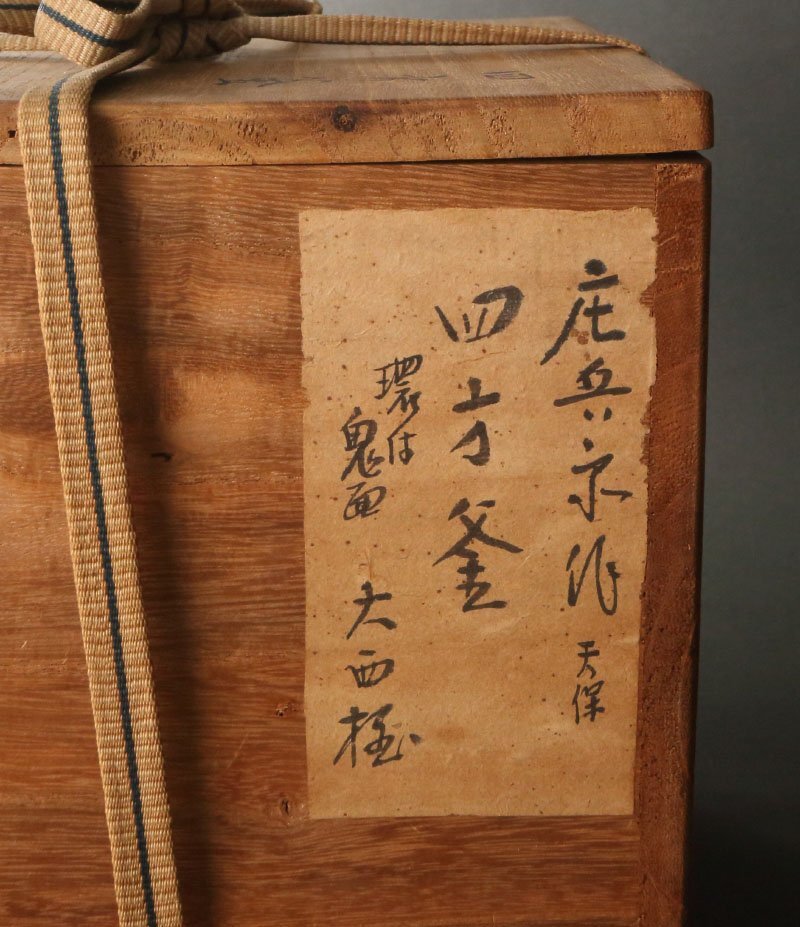 庄兵衛作 天保
四方釜
環付
鬼面
大西極